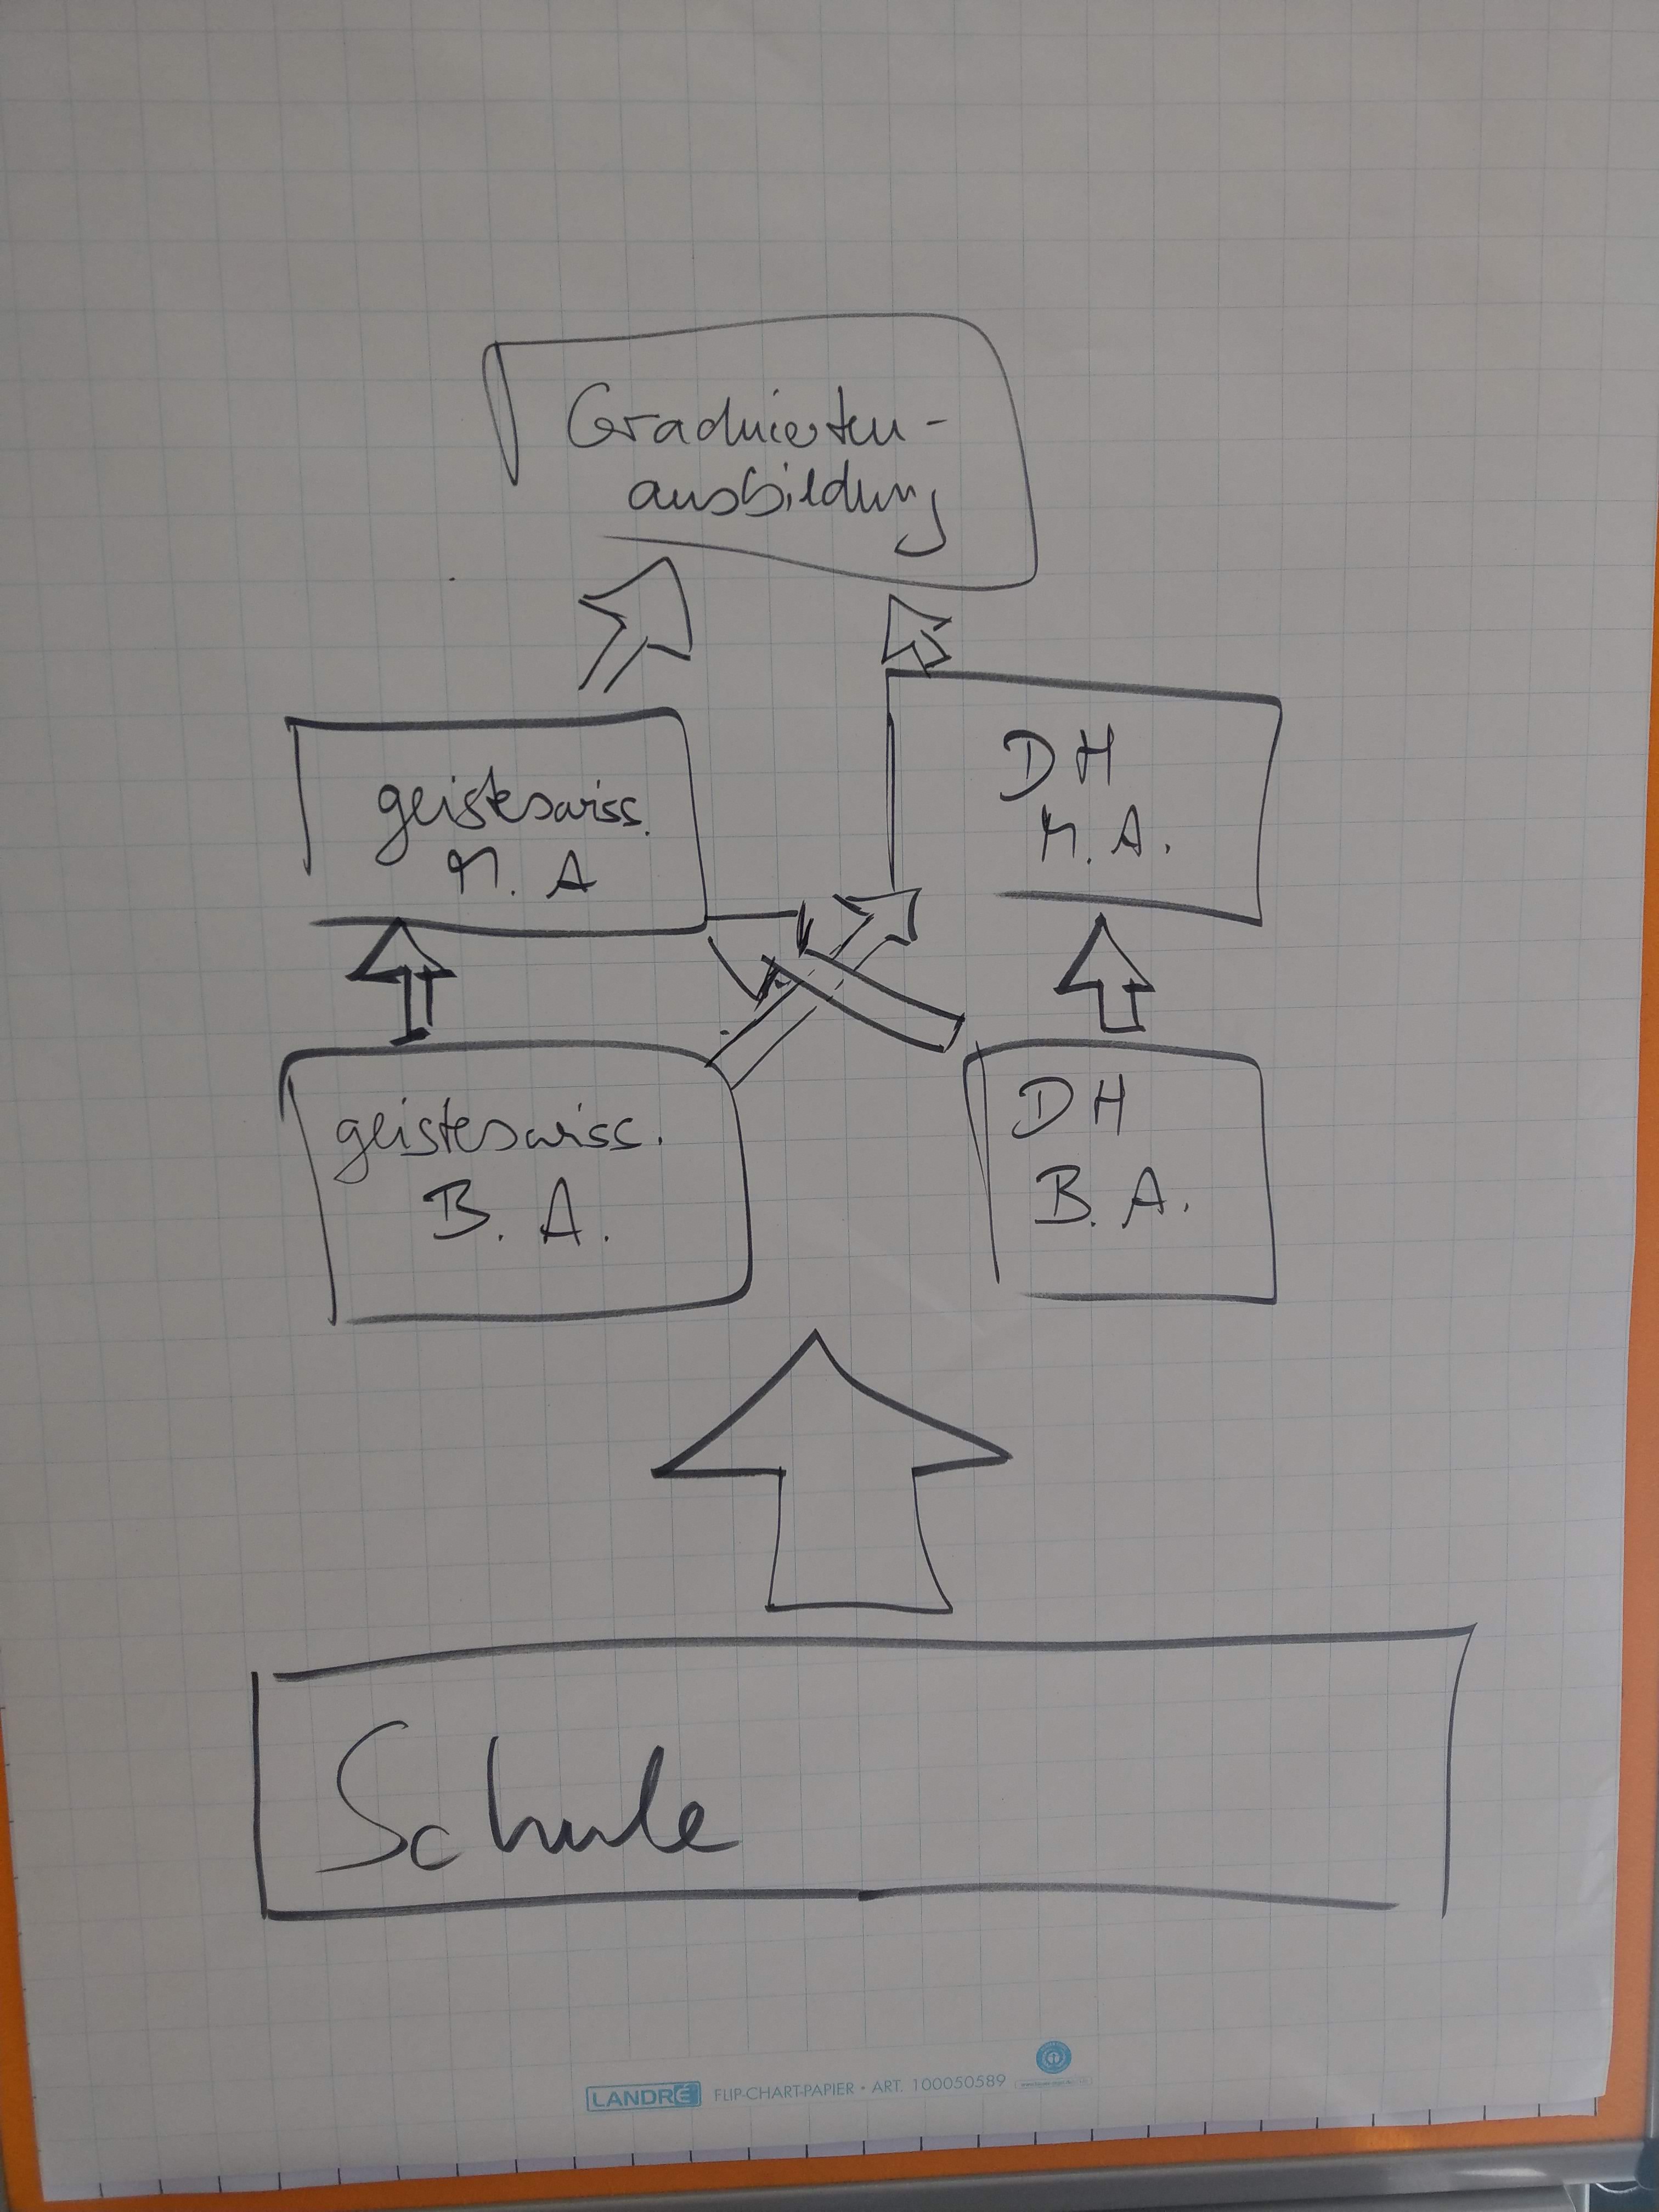 Graduierten-
ausbildung
geisteswiss.
M. A
DH
M. A.
geisteswiss.
B. A.
DH
B. A.
Schule
LANDRÉ FLIP-CHART-PAPIER • ART. 100050589